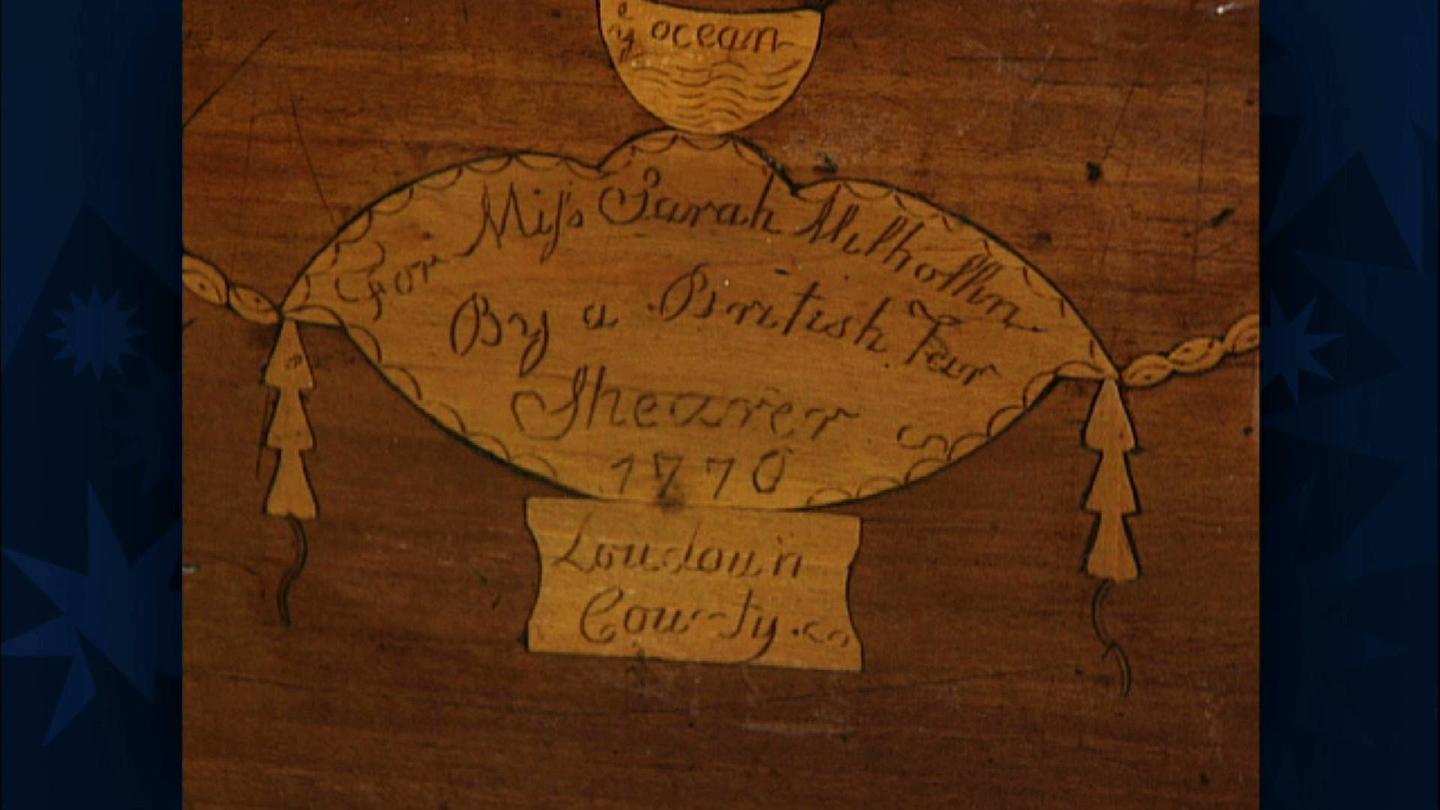 y ocean
For Miſs Sarah Milhollin
By a British Tar
Shearer
1770
Loudoun
County